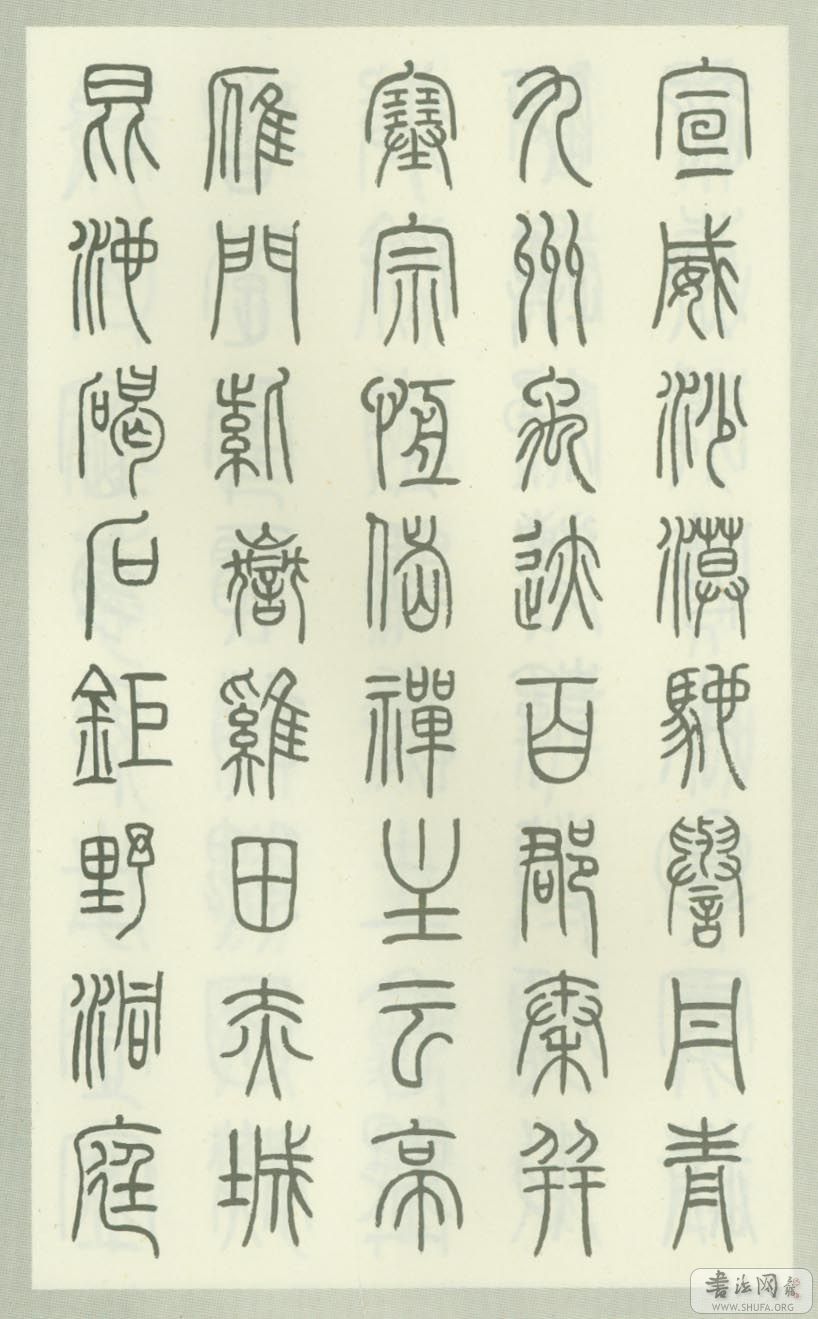 宣威沙漠馳譽丹青
九州禹迹百郡秦并
塞宗恆岱禪主云亭
雁門紫嶽雞田赤城
昆池碣石鉅野洞庭
書法网
WWW.SHUFA.ORG